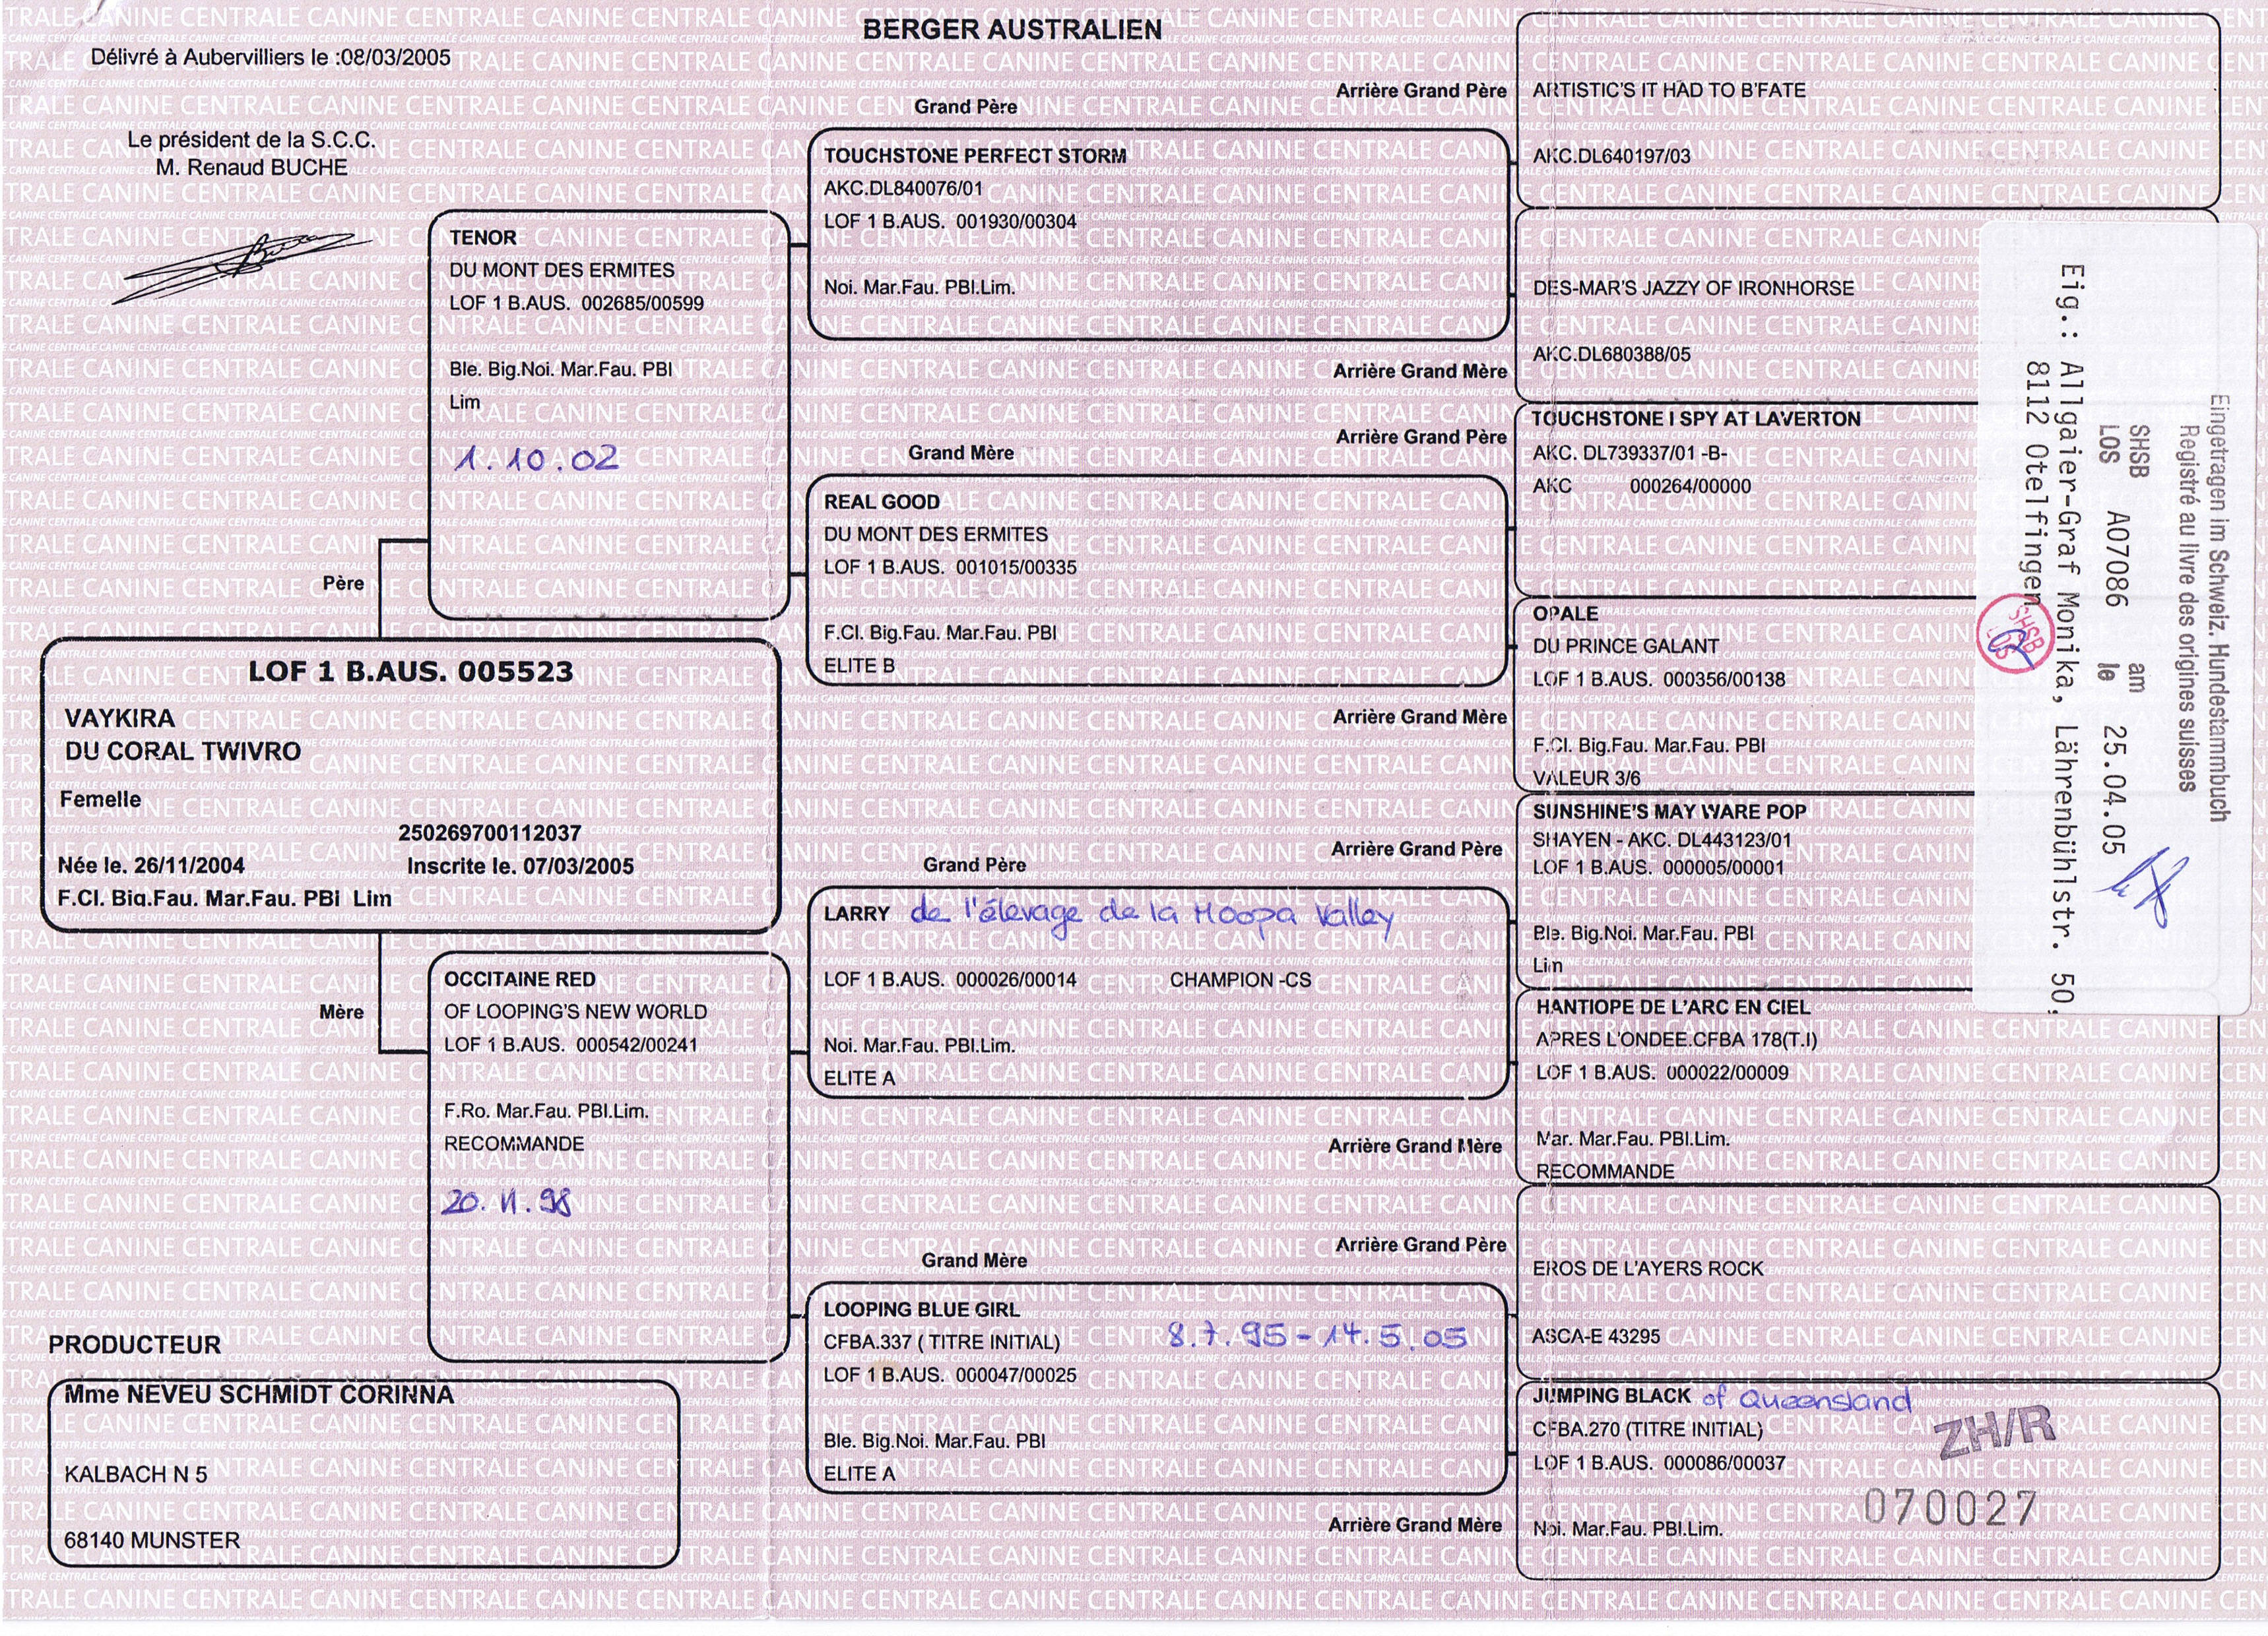 BERGER AUSTRALIEN
Délivré à Aubervilliers le :08/03/2005
Le président de la S.C.C.
M. Renaud BUCHE
Père
LOF 1 B.AUS. 005523
VAYKIRA
DU CORAL TWIVRO
Femelle
250269700112037
Née le. 26/11/2004 Inscrite le. 07/03/2005
F.Cl. Big.Fau. Mar.Fau. PBi Lim
Mère
PRODUCTEUR
Mme NEVEU SCHMIDT CORINNA
KALBACH N 5
68140 MUNSTER
TENOR
DU MONT DES ERMITES
LOF 1 B.AUS. 002685/00599
Ble. Big.Noi. Mar.Fau. PBl
Lim
1.10.02
OCCITAINE RED
OF LOOPING'S NEW WORLD
LOF 1 B.AUS. 000542/00241
F.Ro. Mar.Fau. PBl.Lim.
RECOMMANDE
20.11.98
Grand Père
TOUCHSTONE PERFECT STORM
AKC.DL840076/01
LOF 1 B.AUS. 001930/00304
Noi. Mar.Fau. PBl.Lim.
Grand Mère
REAL GOOD
DU MONT DES ERMITES
LOF 1 B.AUS. 001015/00335
F.Cl. Big.Fau. Mar.Fau. PBl
ELITE B
Grand Père
LARRY de l'élevage de la Hoopa Valley
LOF 1 B.AUS. 000026/00014 CHAMPION -CS
Noi. Mar.Fau. PBl.Lim.
ELITE A
Grand Mère
LOOPING BLUE GIRL
CFBA.337 ( TITRE INITIAL) 8.7.95 - 14.5.05
LOF 1 B.AUS. 000047/00025
Ble. Big.Noi. Mar.Fau. PBl
ELITE A
Arrière Grand Père
ARTISTIC'S IT HAD TO B'FATE
AKC.DL640197/03
DES-MAR'S JAZZY OF IRONHORSE
AKC.DL680388/05
Arrière Grand Mère
Arrière Grand Père
TOUCHSTONE I SPY AT LAVERTON
AKC. DL739337/01 -B-
AKC 000264/00000
OPALE
DU PRINCE GALANT
LOF 1 B.AUS. 000356/00138
Arrière Grand Mère
F.Cl. Big.Fau. Mar.Fau. PBl
VALEUR 3/6
SUNSHINE'S MAY WARE POP
SHAYEN - AKC. DL443123/01
Arrière Grand Père
LOF 1 B.AUS. 000005/00001
Ble. Big.Noi. Mar.Fau. PBl
Lim
HANTIOPE DE L'ARC EN CIEL
APRES L'ONDEE.CFBA 178(T.I)
LOF 1 B.AUS. 000022/00009
Arrière Grand Mère
Mar. Mar.Fau. PBl.Lim.
RECOMMANDE
Arrière Grand Père
EROS DE L'AYERS ROCK
ASCA-E 43295
JUMPING BLACK of Queensland
CFBA.270 (TITRE INITIAL)
LOF 1 B.AUS. 000086/00037
Arrière Grand Mère
Noi. Mar.Fau. PBl.Lim.
ZH/R
070027
Eingetragen im Schweiz. Hundestammbuch
Registré au livre des origines suisses
SHSB am
LOS A07086 le 25.04.05
Eig.: Allgaier-Graf Monika, Lährenbühlstr. 50,
8112 Otelfingen
SHSB
LOS